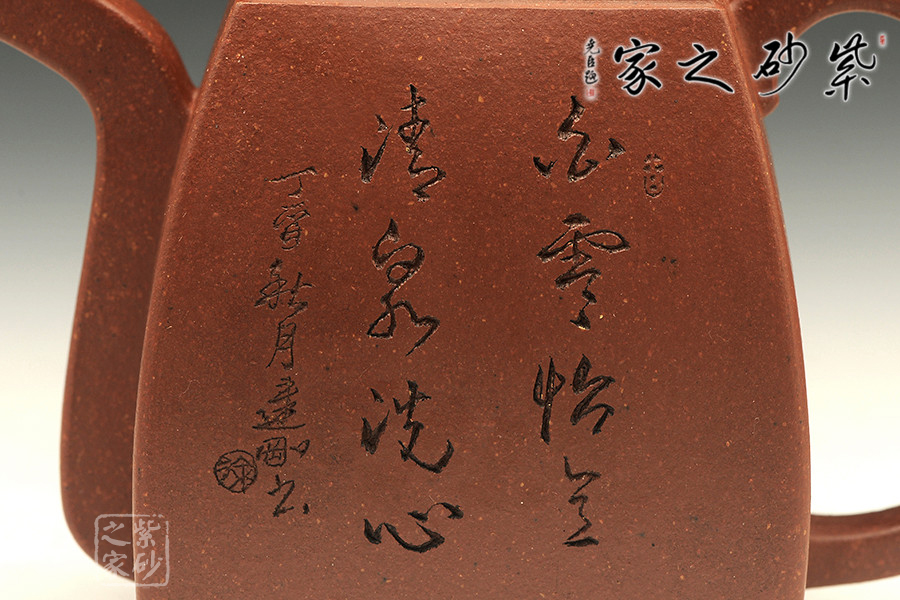 紫砂之家
白雲怡意
清泉洗心
丁酉秋月達剛书
紫砂
之家